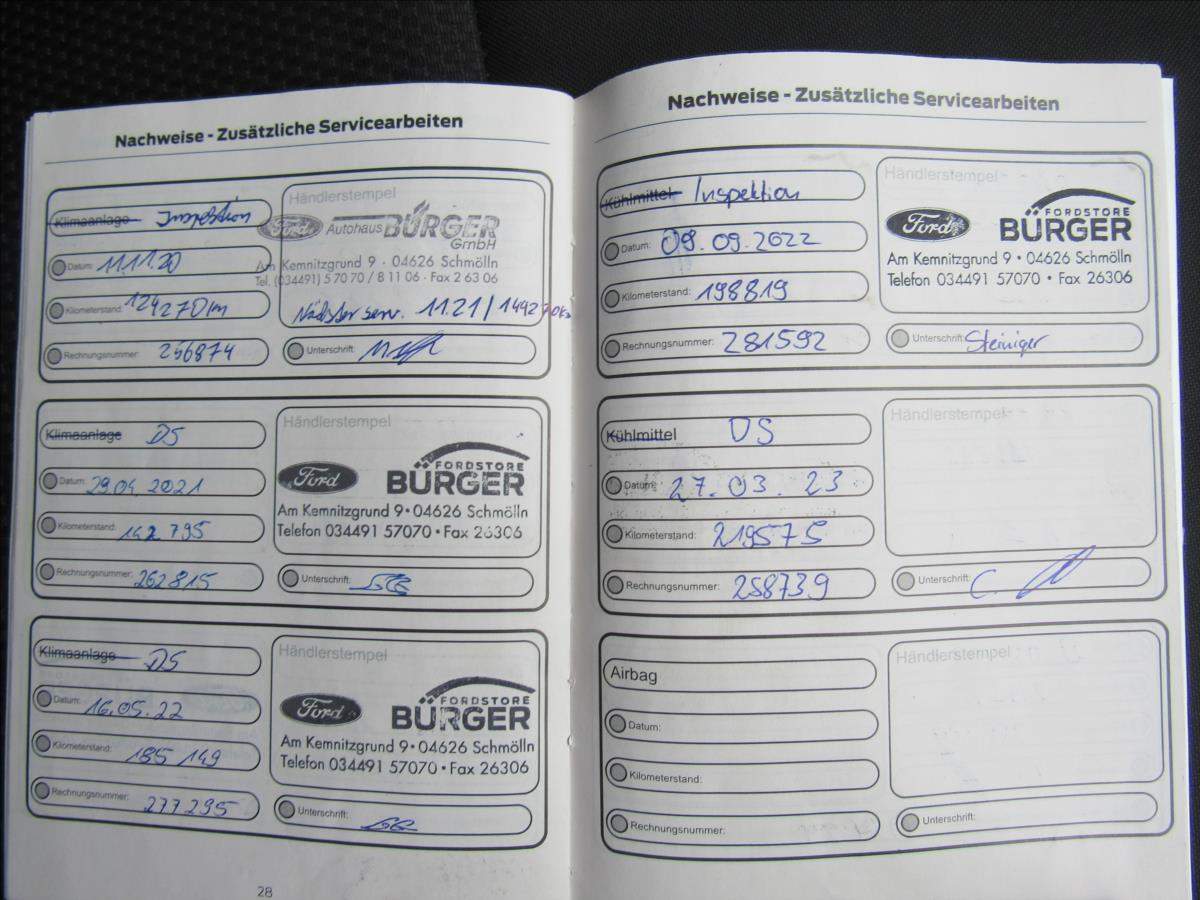 Nachweise - Zusätzliche Servicearbeiten
Klimaanlage Inspektion
Datum: 11.11.20
Kilometerstand: 124270km
Rechnungsnummer: 256874
Händlerstempel
Ford Autohaus BÜRGER GmbH
Am Kemnitzgrund 9 · 04626 Schmölln
Tel. (034491) 5 70 70 / 8 11 06 · Fax 2 63 06
Nächster serv. 11.21 / 149270km
Unterschrift:
Klimaanlage DS
Datum: 29.04.2021
Kilometerstand: 142 795
Rechnungsnummer: 262815
Händlerstempel
Ford FORDSTORE
BÜRGER
Am Kemnitzgrund 9 • 04626 Schmölln
Telefon 034491 57070 • Fax 26306
Unterschrift:
Klimaanlage DS
Datum: 16.05.22
Kilometerstand: 185 149
Rechnungsnummer: 277295
Händlerstempel
Ford FORDSTORE
BÜRGER
Am Kemnitzgrund 9 • 04626 Schmölln
Telefon 034491 57070 • Fax 26306
Unterschrift:
28
Nachweise - Zusätzliche Servicearbeiten
Kühlmittel Inspektion
Datum: 09.09.2022
Kilometerstand: 198819
Rechnungsnummer: 281592
Händlerstempel
Ford FORDSTORE
BÜRGER
Am Kemnitzgrund 9 • 04626 Schmölln
Telefon 034491 57070 • Fax 26306
Unterschrift: Steiniger
Kühlmittel DS
Datum: 27.03.23
Kilometerstand: 219575
Rechnungsnummer: 258739
Händlerstempel
Unterschrift: C.
Airbag
Datum:
Kilometerstand:
Rechnungsnummer:
Händlerstempel
Unterschrift: